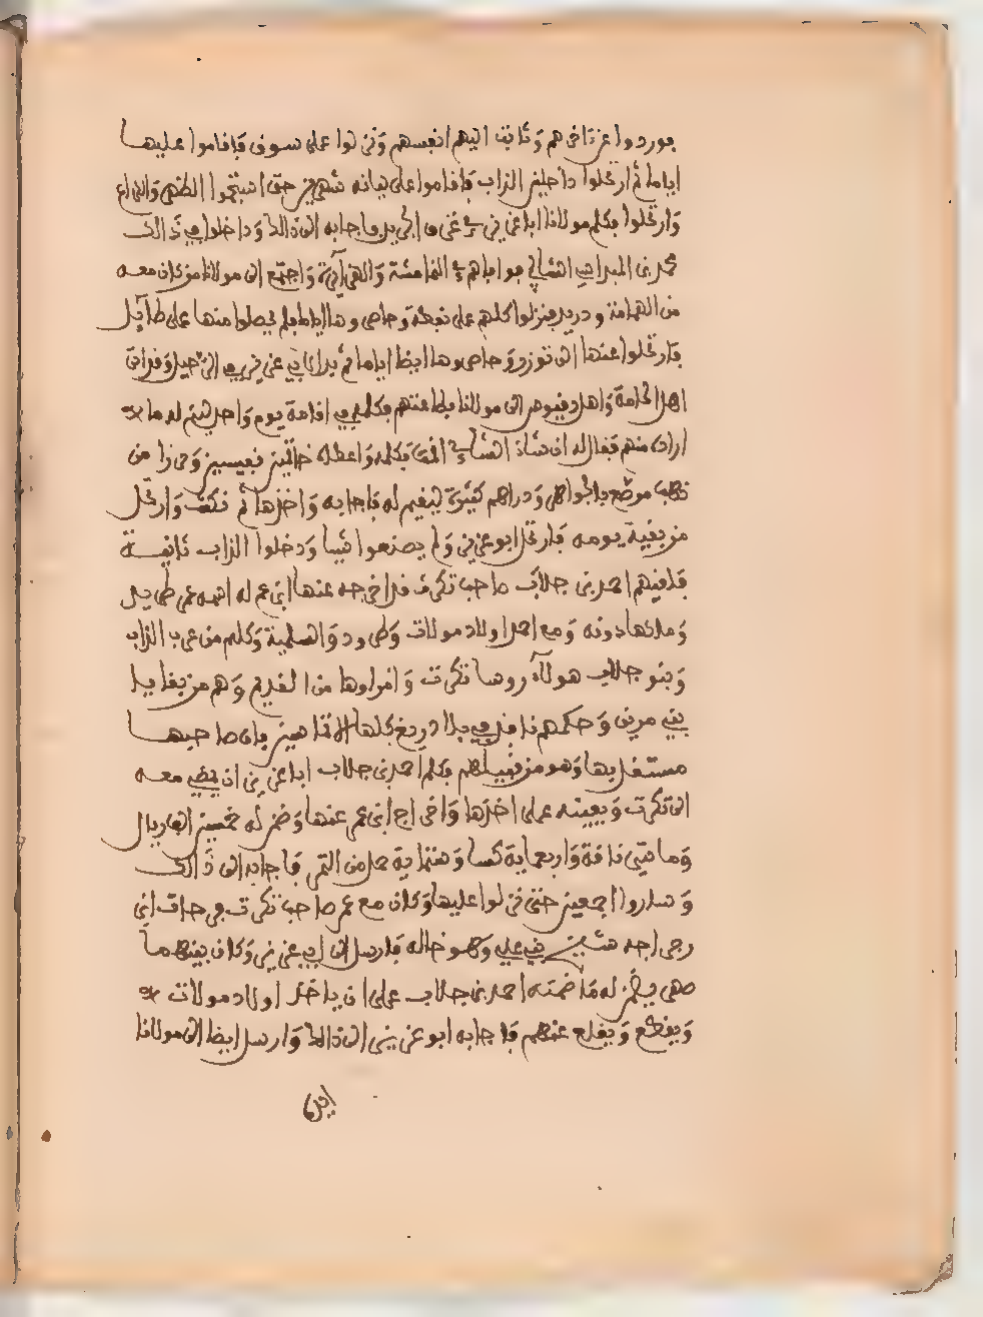 فوردوا عن تاخرهم وثابت اليهم انفسهم ونزلوا على سوف فاقاموا عليها
اياما ثم ارتحلوا داخلين الزاب فاقاموا على ليانه شهرين حتى استنجوا الظهر والكراع
وارتحلوا فكلم مولانا ابا عزيز في غزو الجريد فاجابه الى ذالك وداخلوا في ذالك
محمد بن المبرات الشابي فوافاهم في الخامسة والهزازة واجتمع الى مولانا من كان معه
من الهمامة ودريد فنزلوا كلهم على نفطة وحاصروها اياما فلم يحصلوا منها على طآيل
فارتحلوا عنها الى توزر وحاصروها ايضا اياما ثم بدا لابي عزيز في الرحيل وقد اتى
اهل الحامة واهل دقيوس الى مولانا بطاعتهم فكلمه في اقامة يوم واحد ليتم له ما
اراد منهم فقال له ان شاء الشابي اقمنا فكلمه واعطاه خاتمين نفيسين وحرزا من
ذهب مرصع بالجواهر ودراهم كثيرة ليقيم له فاجابه واخذها ثم نكث وارتحل
من بقية يومه فارتحل ابو عزيز ولم يصنعوا شيا ودخلوا الزاب ثانيـــة
فلقيهم احمد بن جلاب صاحب تكرت قد اخرجه عنها ابن عم له اسمه عمر طويل
وملكها دونه ومع احمد اولاد مولات وطرود والسلمية وكلهم من عرب الزاب
وبنو جلاب هولآء روسا تكرت وامراوها من القديم وهم من بقايا
بني مرين وحكمهم نافذ في بلاد ريغ كلها الا تماسين فان صاحبها
مستقل بها وهو من قبيلهم فكلم احمد بن جلاب ابا عزيز ان يمضي معه
الى تكرت ويعينه على اخذها واخراج ابن عمه عنها وضمن له خمسين الف ريال
وماءتي ناقة واربعماية كسا وستماية حمل من التمر فاجابه الى ذالك
وساروا اجمعين حتى نزلوا عليها وكان مع عمر صاحب تكرت فرحات ابن
رجراجه شيخ بني علي وهو خاله فارسل الى ابي عزيز وكان بينهما
صهر يضمن له ما ضمنه احمد بن جلاب على ان ياخذ اولاد مولات
ويقطع ويقلع عنهم فاجابه ابو عزيز الى ذالك وارسل ايضا الى مولانا